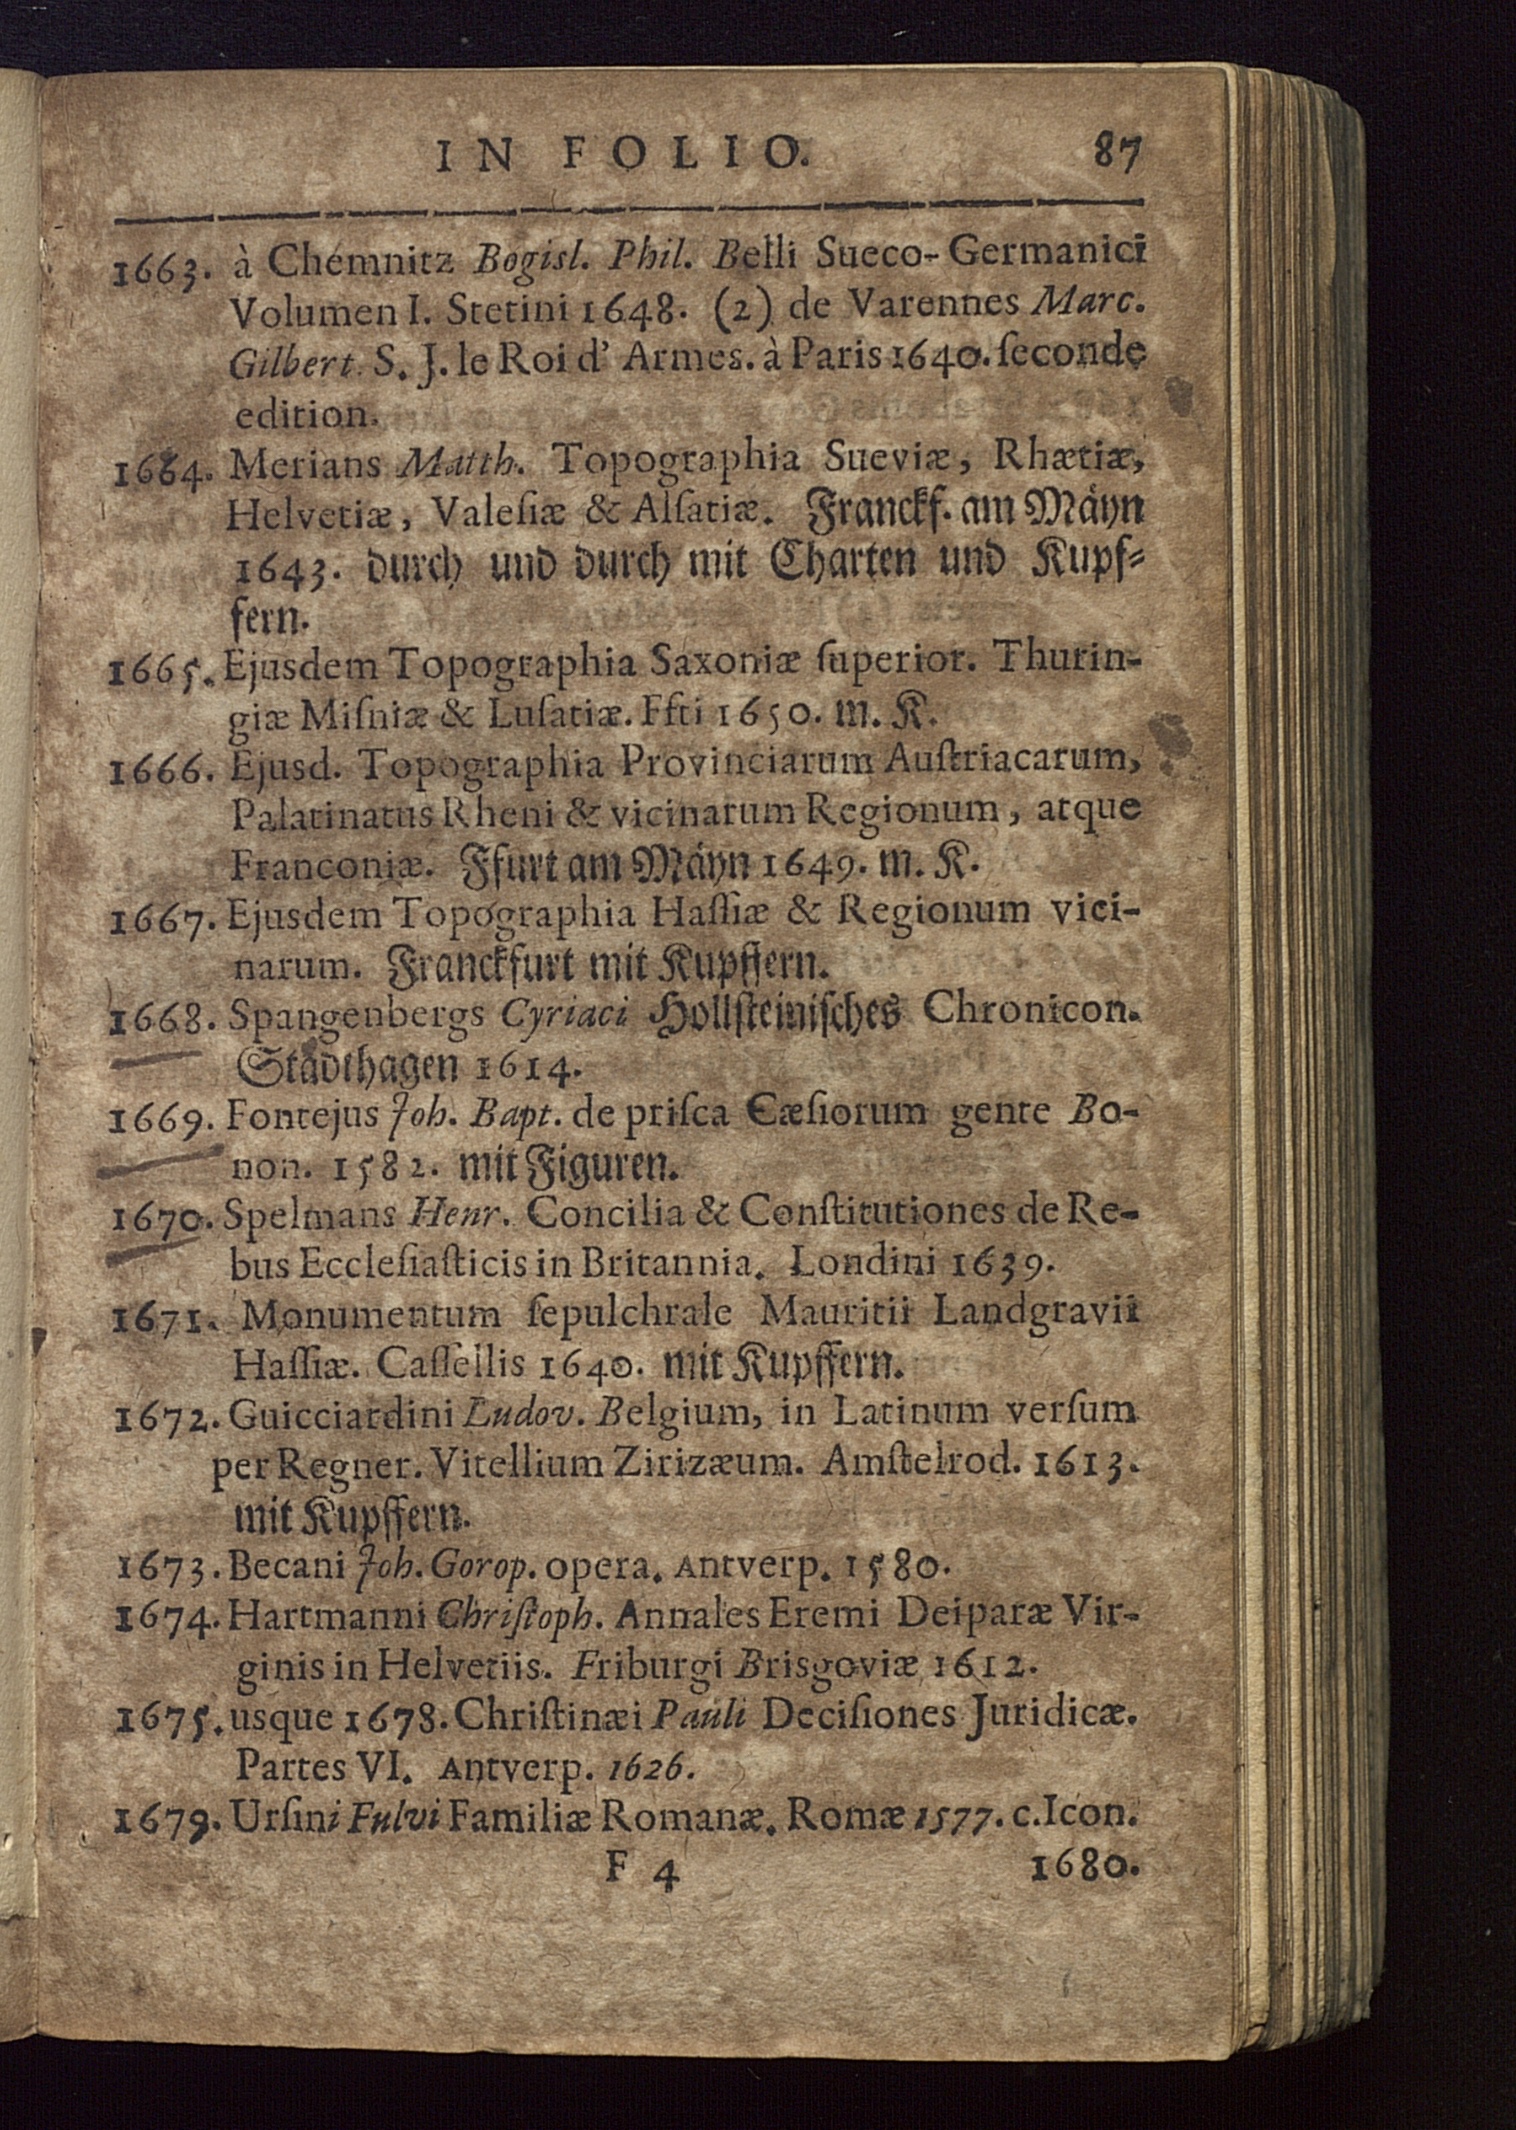 IN FOLIO. 87
1663. à Chemnitz Bogisl. Phil. Belli Sueco-Germanici
Volumen I. Stetini 1648. (2) de Varennes Marc.
Gilbert. S. J. le Roi d' Armes. à Paris 1640. ſeconde
edition.
1664. Merians Matth. Topographia Sueviæ, Rhætiæ,
Helvetiæ, Valeſiæ & Alſatiæ. Franckf. am Mäyn
1643. durch und durch mit Charten und Kupf⸗
fern.
1665. Ejusdem Topographia Saxoniæ ſuperior. Thurin-
giæ Miſniæ & Luſatiæ. Ffti 1650. m. K.
1666. Ejusd. Topographia Provinciarum Auſtriacarum,
Palatinatus Rheni & vicinarum Regionum, atque
Franconiæ. Ffurt am Mäyn 1649. m. K.
1667. Ejusdem Topographia Haſſiæ & Regionum vici-
narum. Franckfurt mit Kupffern.
1668. Spangenbergs Cyriaci Hollſteiniſches Chronicon.
Stadthagen 1614.
1669. Fontejus Joh. Bapt. de priſca Cæſiorum gente Bo-
non. 1582. mit Figuren.
1670. Spelmans Henr. Concilia & Conſtitutiones de Re-
bus Eccleſiaſticis in Britannia. Londini 1639.
1671. Monumentum ſepulchrale Mauritii Landgravii
Haſſiæ. Caſſellis 1640. mit Kupffern.
1672. Guicciardini Ludov. Belgium, in Latinum verſum
per Regner. Vitellium Zirizæum. Amſtelrod. 1613.
mit Kupffern.
1673. Becani Joh. Gorop. opera. Antverp. 1580.
1674. Hartmanni Chriſtoph. Annales Eremi Deiparæ Vir-
ginis in Helvetiis. Friburgi Brisgoviæ 1612.
1675. usque 1678. Chriſtinæi Pauli Deciſiones Juridicæ.
Partes VI. Antverp. 1626.
1679. Urſini Fulvi Familiæ Romanæ. Romæ 1577. c. Icon.
F 4 1680.